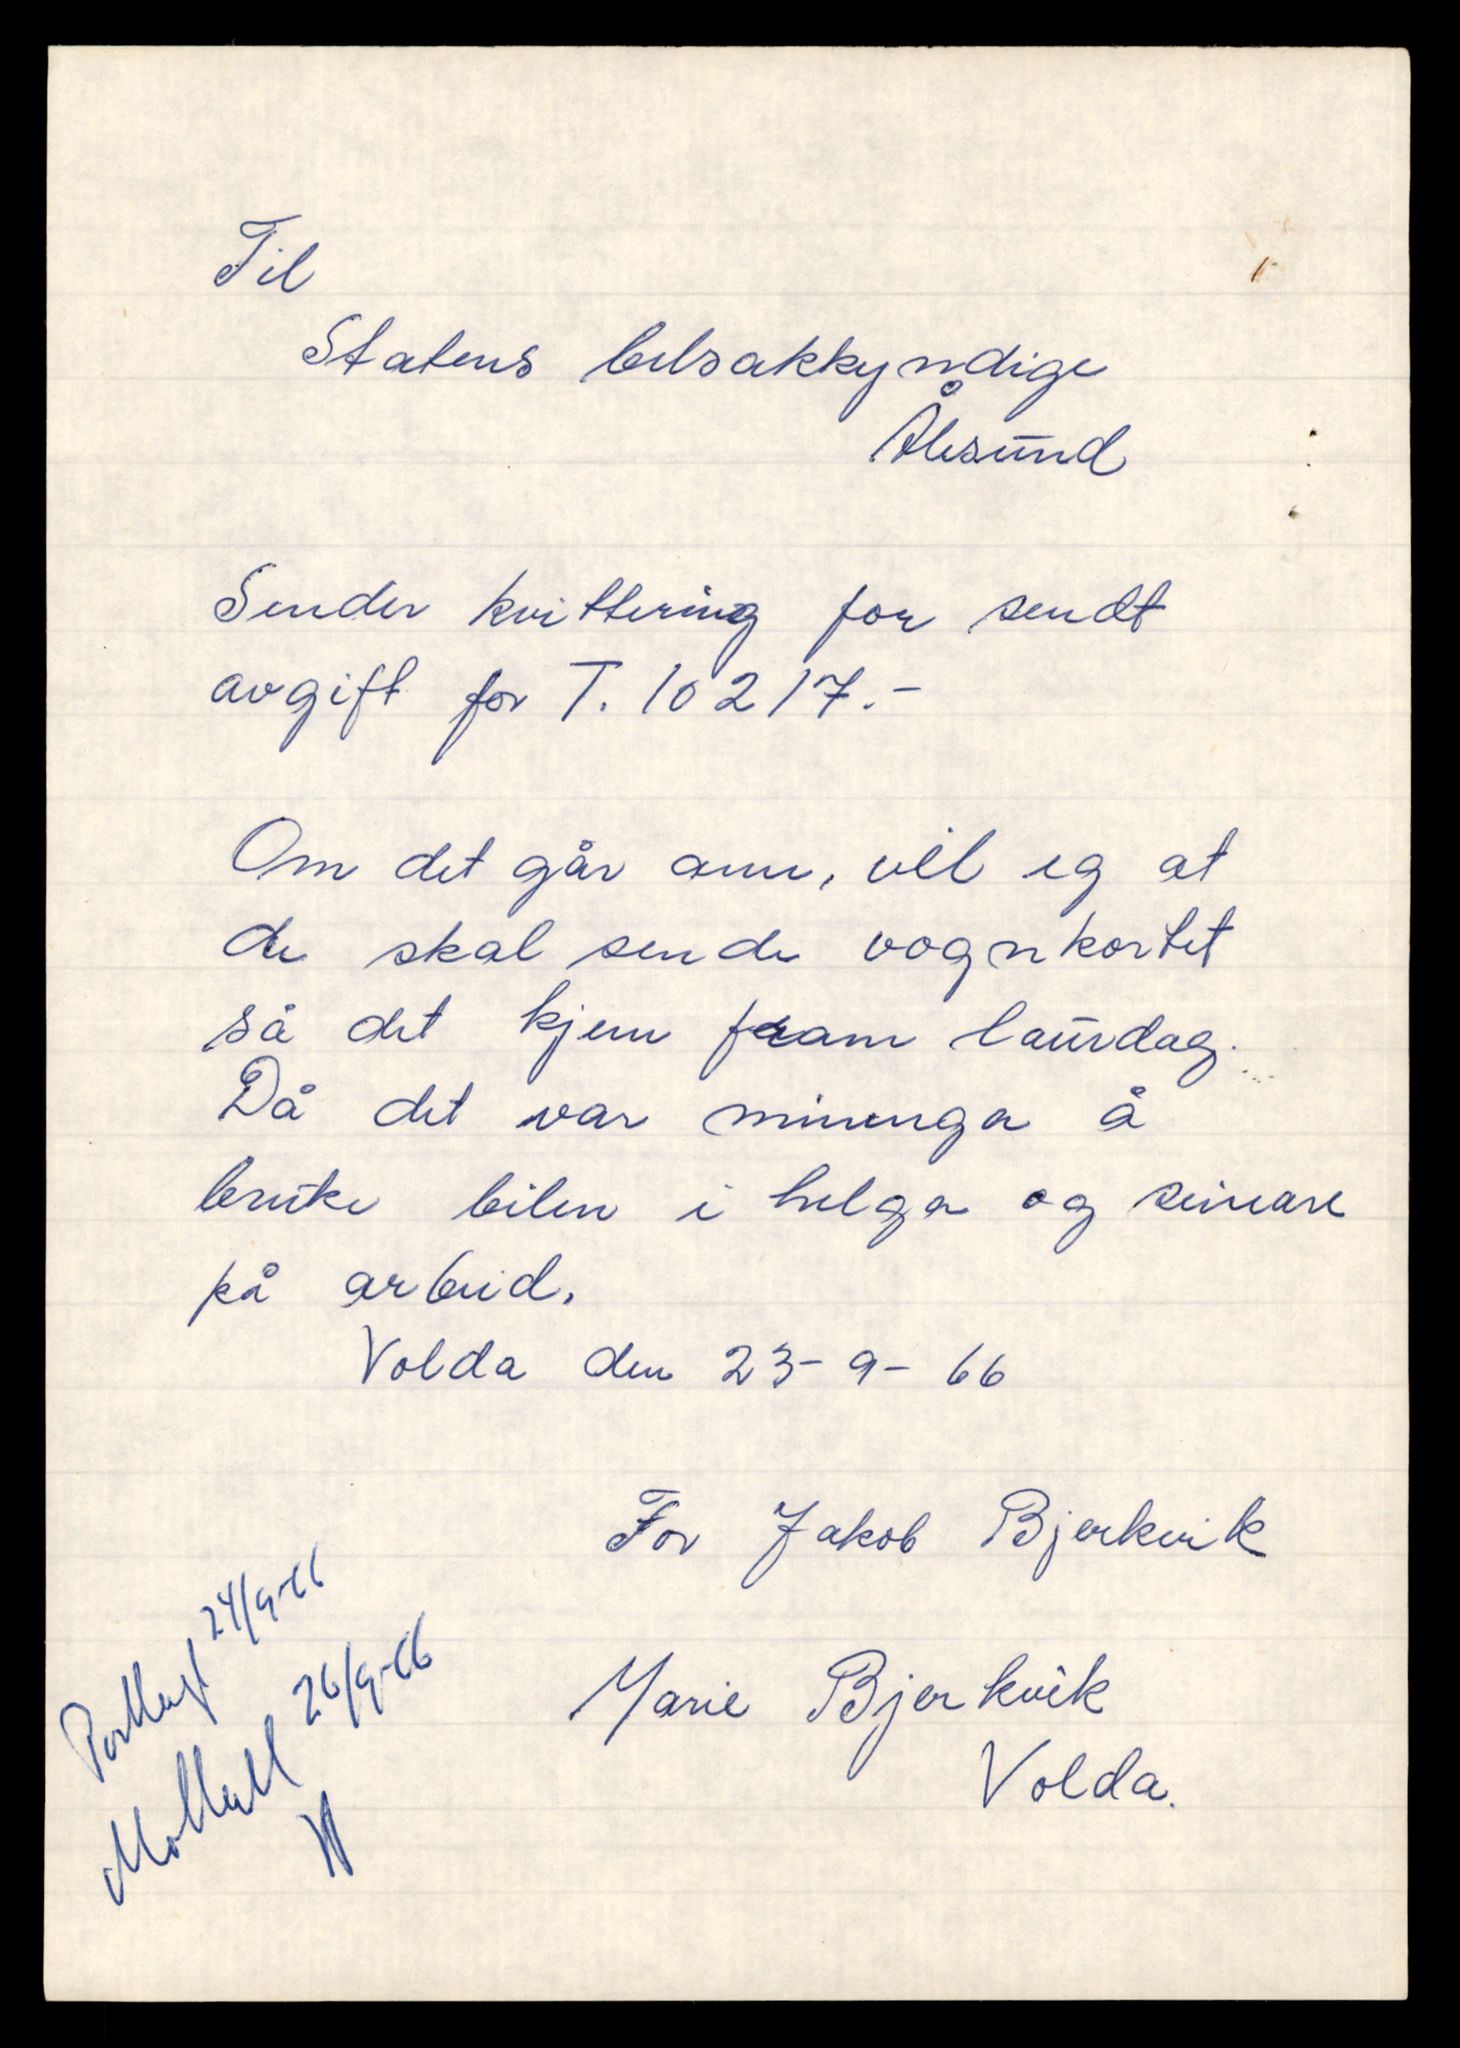 Til
Statens bilsakkyndige
Ålesund
Sender kvittering for sendt
avgift for T. 10217.-
Om det går ann, vil eg at
de skal sende vognkortet
så det kjem fram laurdag.
Då det var mininga å
bruke bilen i helga og seineare
på arbeid.
Volda den 23-9-66
For Jakob Bjerkvik
Marie Bjerkvik
Volda.
24/9-66
26/9-66